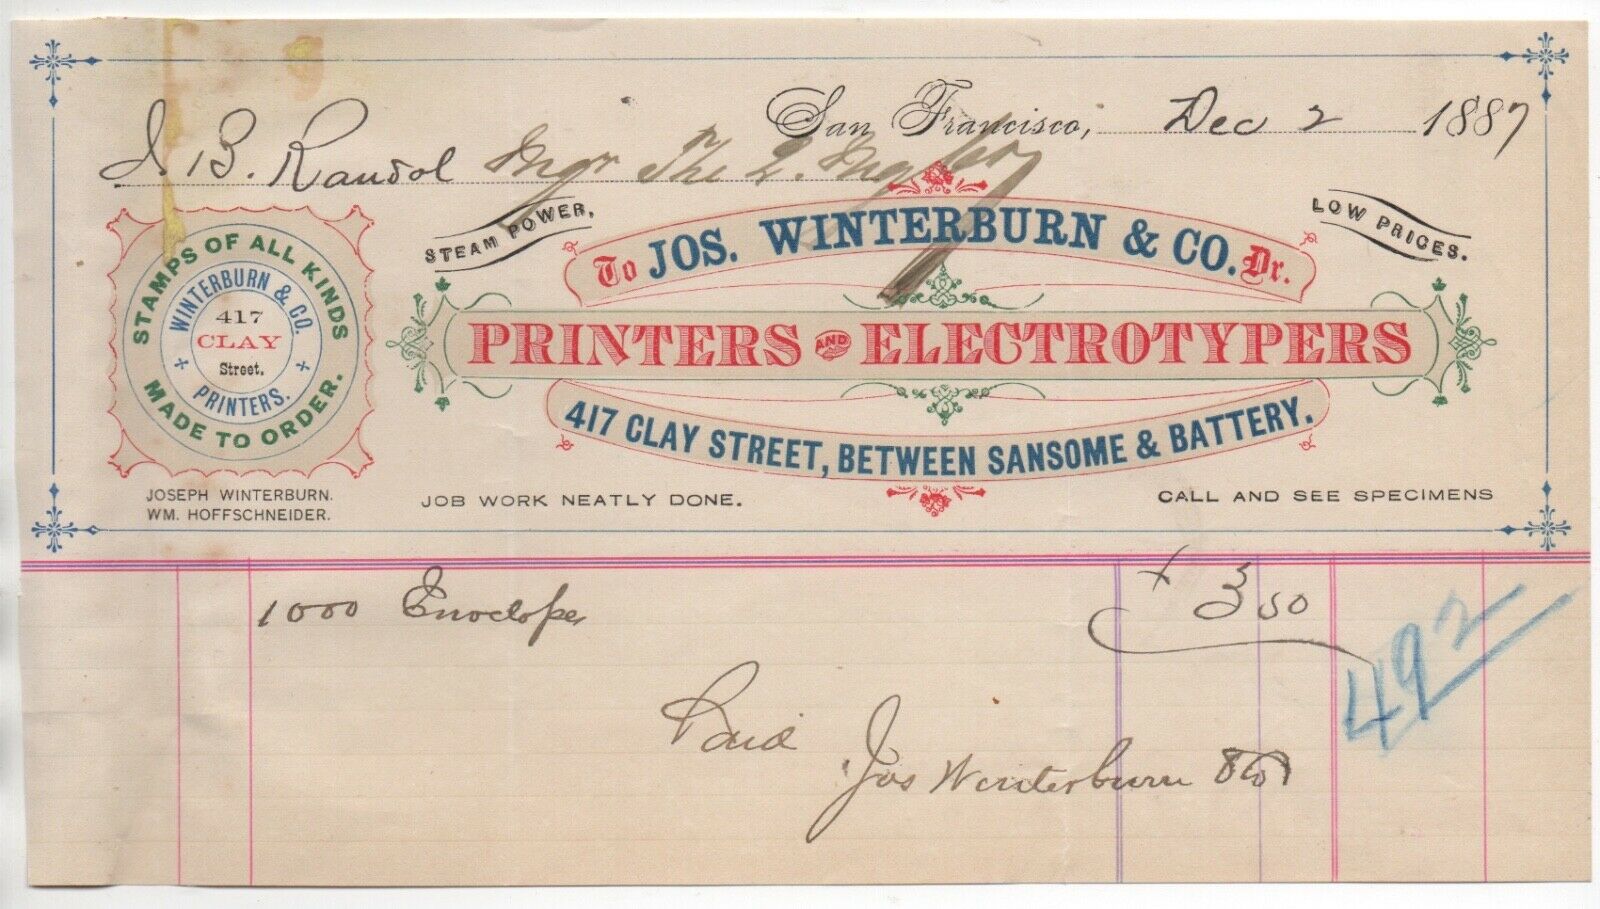 San Francisco, Dec 2 1887
J. B. Randol Mgr The Q. Mg
STEAM POWER,
LOW PRICES.
To JOS. WINTERBURN & CO. Dr.
PRINTERS AND ELECTROTYPERS
417 CLAY STREET, BETWEEN SANSOME & BATTERY.
STAMPS OF ALL KINDS
MADE TO ORDER.
WINTERBURN & CO.
417
CLAY
Street.
PRINTERS.
JOSEPH WINTERBURN.
WM. HOFFSCHNEIDER.
JOB WORK NEATLY DONE.
CALL AND SEE SPECIMENS
1000 Envelopes 3 50
492
Paid
Jos Winterburn & Co